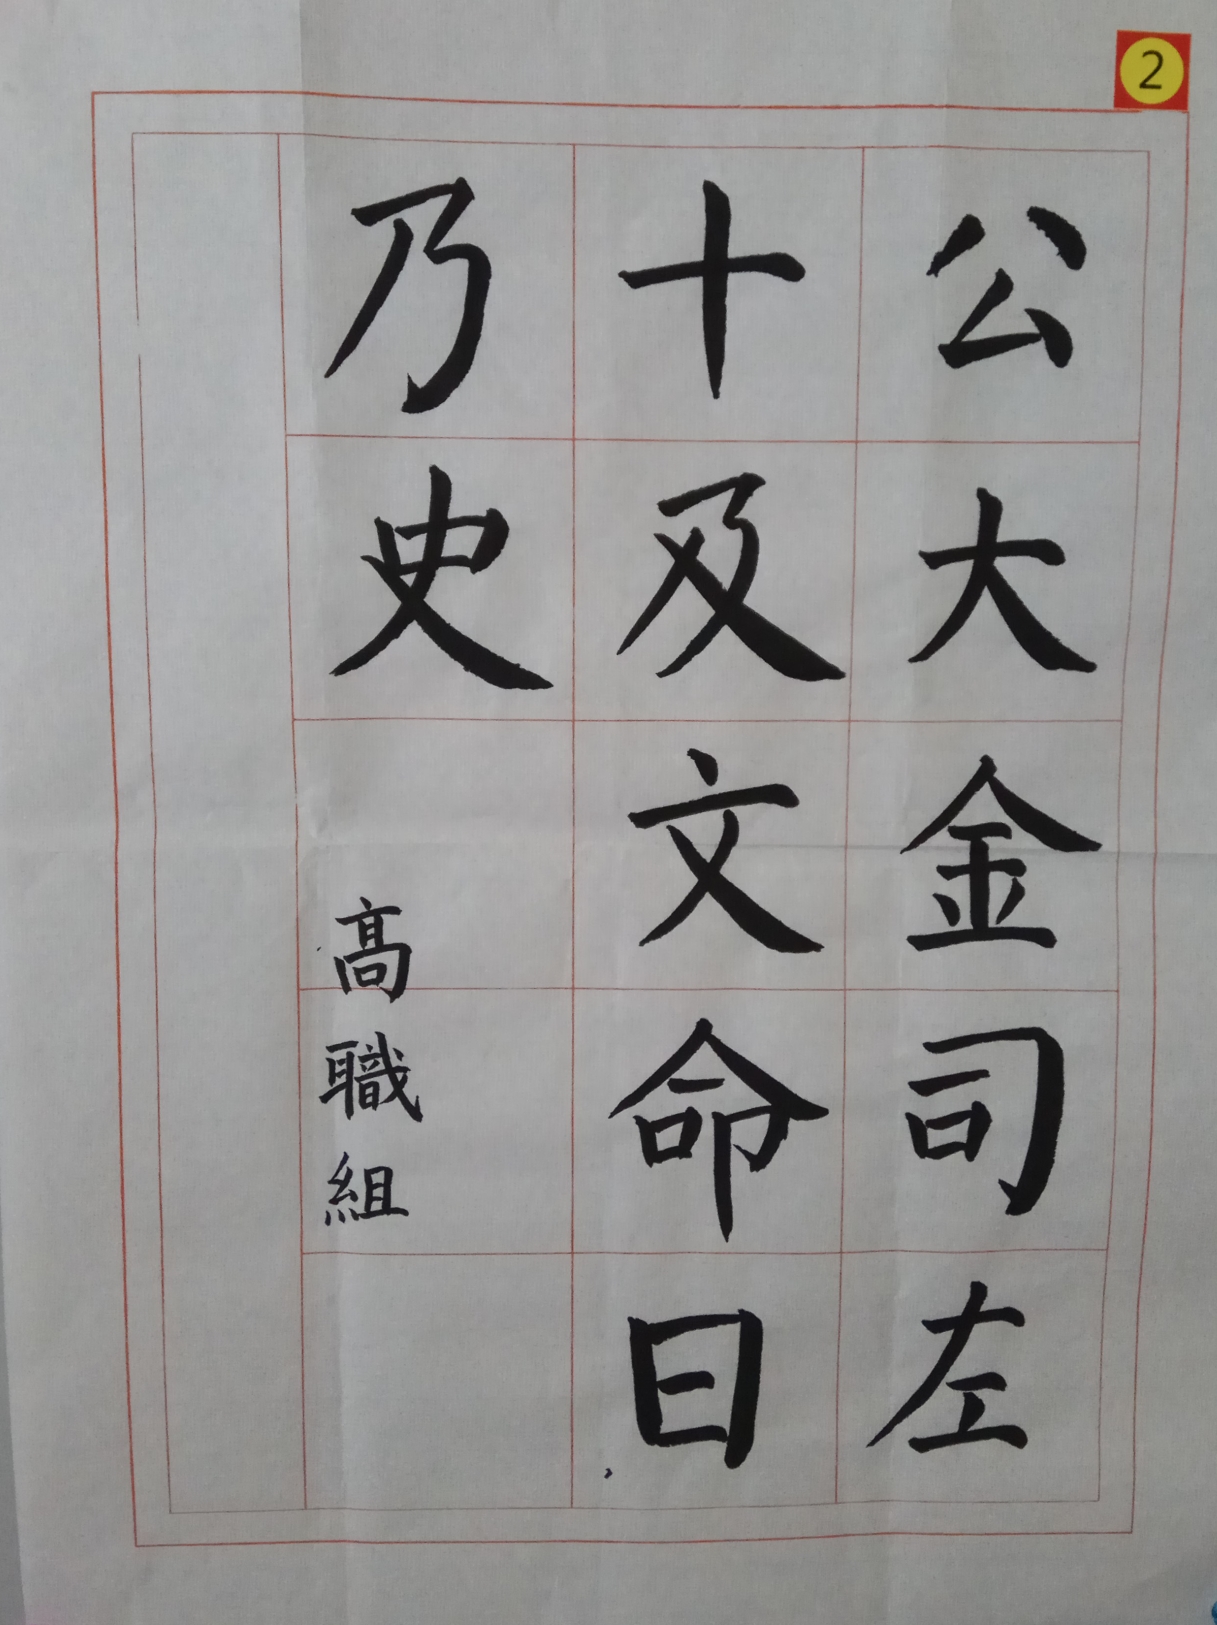 2
公大金司左
十及文命日
乃史
高職組